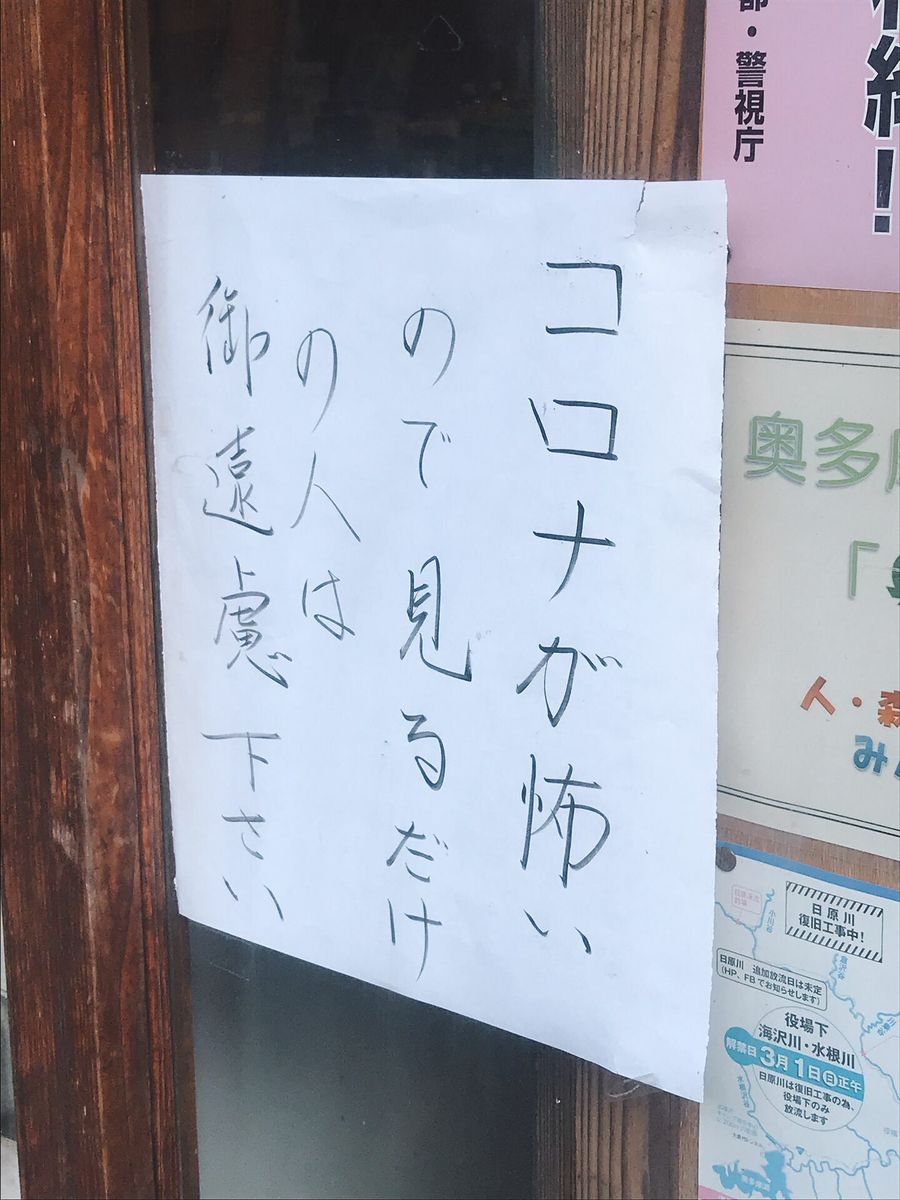 コロナが怖い
ので見るだけ
の人は
御遠慮下さい
・警視庁
!
奥多
「
人・森
み
日原川
復旧工事中!
小川谷
日原川 追加放流日は未定
(HP、FBでお知らせします)
役場下
海沢川・水根川
解禁日3月1日㊐正午
日原川は復旧工事の為、
役場下のみ
放流します
水根沢谷
奥多摩湖